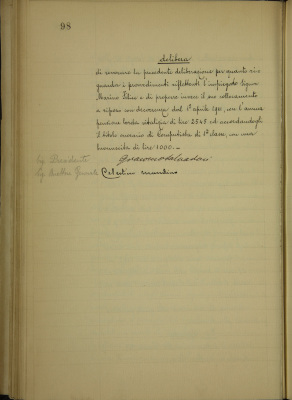 98
delibera
di revocare la precedente deliberazione per quanto ri-
guarda i provvedimenti riflettenti l'impiegato Signor
Marino Felice e di proporre invece il suo collocamento
a riposo con decorrenza dal 1° aprile 1911, con l'annua
pensione lorda vitalizia di lire 2548 ed accordandogli
il titolo onorario di Computista di 1ª classe, con una
buonuscita di lire 1000.-
Celestino